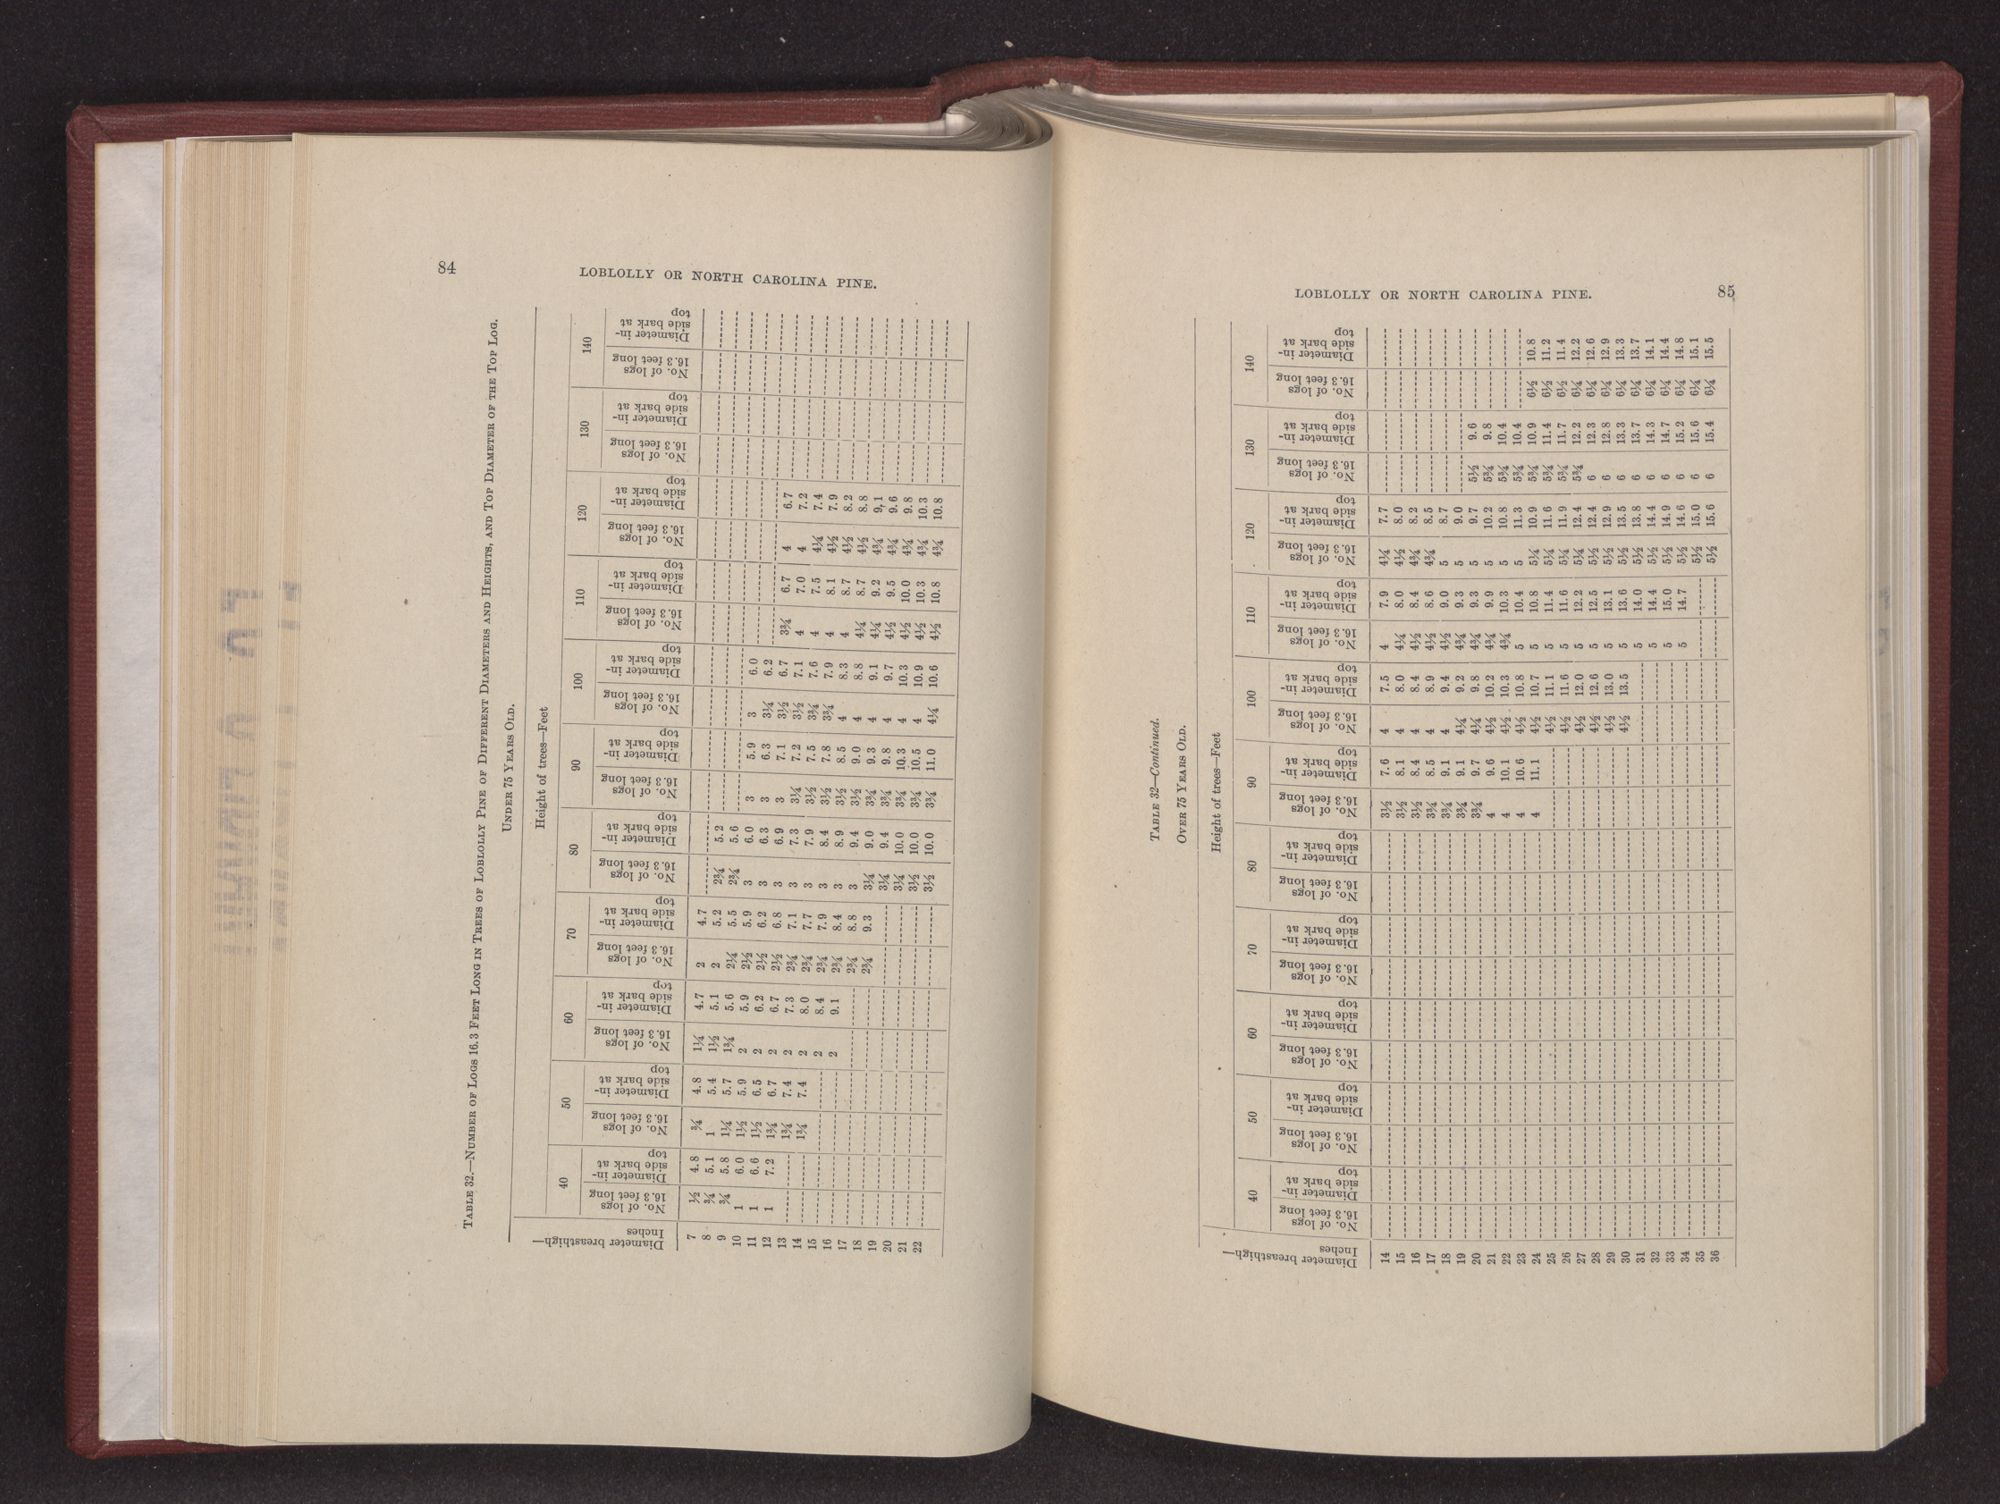 84
LOBLOLLY OR NORTH CAROLINA PINE.
TABLE 32.—NUMBER OF LOGS 16.3 FEET LONG IN TREES OF LOBLOLLY PINE OF DIFFERENT DIAMETERS AND HEIGHTS, AND TOP DIAMETER OF THE TOP LOG.
UNDER 75 YEARS OLD.
Height of trees—Feet
40 50 60 70 80 90 100 110 120 130 140
Diameter breasthigh—Inches
No. of logs 16.3 feet long Diameter inside bark at top No. of logs 16.3 feet long Diameter inside bark at top No. of logs 16.3 feet long Diameter inside bark at top No. of logs 16.3 feet long Diameter inside bark at top No. of logs 16.3 feet long Diameter inside bark at top No. of logs 16.3 feet long Diameter inside bark at top No. of logs 16.3 feet long Diameter inside bark at top No. of logs 16.3 feet long Diameter inside bark at top No. of logs 16.3 feet long Diameter inside bark at top No. of logs 16.3 feet long Diameter inside bark at top No. of logs 16.3 feet long Diameter inside bark at top
7 ½ 4.8 ¾ 4.8 1¼ 4.7 2 4.7
8 ¾ 5.1 1 5.4 1½ 5.1 2 5.2 2¾ 5.2
9 ¾ 5.8 1¼ 5.7 1¾ 5.6 2¼ 5.5 2¾ 5.6
10 1 6.0 1½ 5.9 2 5.9 2½ 5.9 3 6.0 3 5.9 3 6.0
11 1 6.6 1½ 6.5 2 6.2 2½ 6.2 3 6.3 3 6.3 3¼ 6.2
12 1 7.2 1¾ 6.7 2 6.7 2½ 6.8 3 6.9 3 7.1 3½ 6.7 3¾ 6.7 4 6.7
13 1¾ 7.4 2 7.3 2¾ 7.1 3 7.3 3¼ 7.2 3½ 7.1 4 7.0 4 7.2
14 1¾ 7.4 2 8.0 2¾ 7.7 3 7.9 3½ 7.5 3¾ 7.6 4 7.5 4¼ 7.4
15 2 8.4 2¾ 7.9 3 8.4 3½ 7.8 3¾ 7.9 4 8.1 4½ 7.9
16 2 9.1 2¾ 8.4 3 8.9 3½ 8.5 4 8.3 4 8.7 4½ 8.2
17 2¾ 8.8 3 9.4 3½ 9.0 4 8.8 4¼ 8.7 4½ 8.8
18 2¾ 9.3 3¼ 9.0 3¾ 9.3 4 9.1 4¼ 9.2 4¾ 9.1
19 3¼ 9.4 3¾ 9.8 4 9.7 4½ 9.5 4¾ 9.6
20 3¼ 10.0 3¾ 10.3 4 10.3 4½ 10.0 4¾ 9.8
21 3½ 10.0 3¾ 10.5 4 10.9 4½ 10.3 4¾ 10.3
22 3½ 10.0 3¾ 11.0 4¼ 10.6 4½ 10.8 4¾ 10.8
LOBLOLLY OR NORTH CAROLINA PINE.
85
TABLE 32—Continued.
OVER 75 YEARS OLD.
Height of trees—Feet
40 50 60 70 80 90 100 110 120 130 140
Diameter breasthigh—Inches
No. of logs 16.3 feet long Diameter inside bark at top No. of logs 16.3 feet long Diameter inside bark at top No. of logs 16.3 feet long Diameter inside bark at top No. of logs 16.3 feet long Diameter inside bark at top No. of logs 16.3 feet long Diameter inside bark at top No. of logs 16.3 feet long Diameter inside bark at top No. of logs 16.3 feet long Diameter inside bark at top No. of logs 16.3 feet long Diameter inside bark at top No. of logs 16.3 feet long Diameter inside bark at top No. of logs 16.3 feet long Diameter inside bark at top No. of logs 16.3 feet long Diameter inside bark at top
14 3½ 7.6 4 7.5 4 7.9 4¼ 7.7
15 3½ 8.1 4 8.0 4¼ 8.0 4½ 8.0
16 3½ 8.4 4 8.4 4½ 8.4 4¾ 8.2
17 3¾ 8.5 4 8.9 4½ 8.6 4¾ 8.5
18 3¾ 9.1 4 9.4 4½ 9.0 5 8.7
19 3¾ 9.1 4¼ 9.2 4¾ 9.3 5 9.0
20 3¾ 9.7 4¼ 9.8 4¾ 9.3 5 9.7 5½ 9.6
21 4 9.6 4½ 10.2 4¾ 9.9 5 10.2 5¾ 9.8
22 4 10.1 4½ 10.3 4¾ 10.3 5 10.8 5¾ 10.4
23 4 10.6 4½ 10.8 5 10.4 5 11.3 5¾ 10.4
24 4 11.1 4½ 10.7 5 10.8 5¼ 10.9 5¾ 10.9 6½ 10.8
25 4½ 11.1 5 11.4 5¼ 11.6 5¾ 11.4 6½ 11.2
26 4½ 11.6 5 11.6 5¼ 11.9 5¾ 11.7 6½ 11.4
27 4½ 12.0 5 12.2 5¼ 12.4 5¾ 12.2 6¼ 12.2
28 4½ 12.6 5 12.5 5½ 12.4 6 12.3 6¼ 12.6
29 4½ 13.0 5 13.1 5½ 12.9 6 12.8 6¼ 12.9
30 4½ 13.5 5 13.6 5½ 13.5 6 13.3 6¼ 13.3
31 5 14.0 5½ 13.8 6 13.7 6¼ 13.7
32 5 14.4 5½ 14.4 6 14.3 6¼ 14.1
33 5 15.0 5½ 14.9 6 14.7 6¼ 14.4
34 5 14.7 5½ 14.6 6 15.2 6¼ 14.8
35 5½ 15.0 6 15.6 6¼ 15.1
36 5½ 15.6 6 15.4 6¼ 15.5